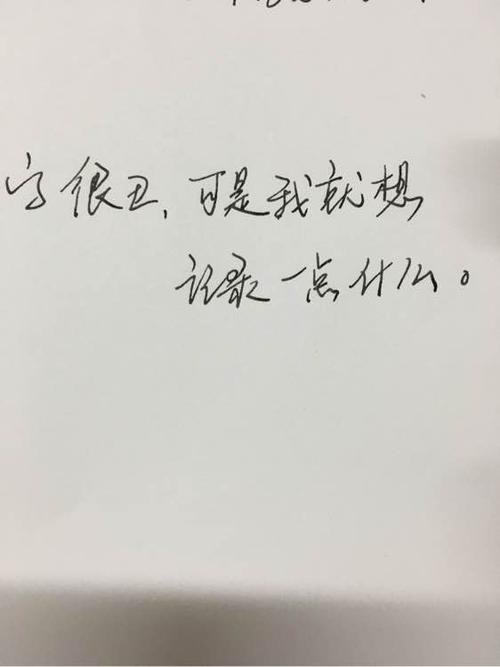 字很丑，可是我就想
记录一点什么。